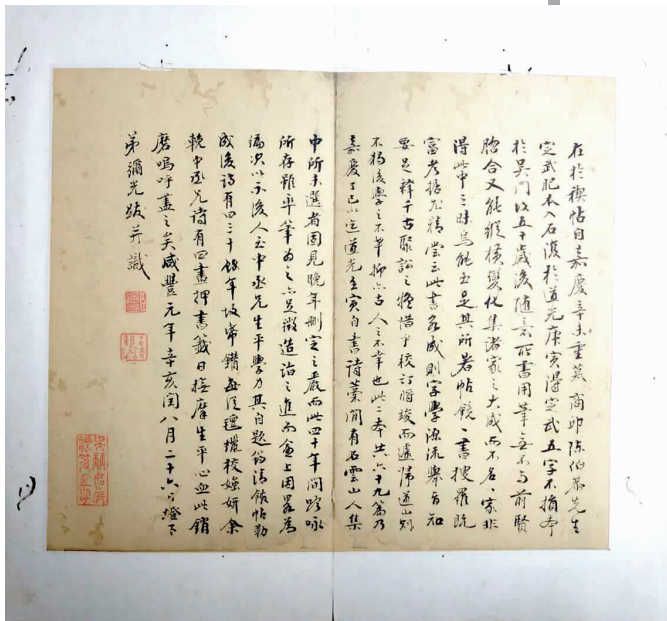 在於禊帖自嘉慶辛未重摹商邱陳伯恭先生
定武肥本入石後於道光庚寅得定武五字不損本
於吳門故五十歲後隨意所書用筆無不與前賢
脗合又能縱橫變化集諸家之大成而不名一家非
得此中三昧烏能至是其所著帖鏡一書搜羅既
富考據尤精嘗云此書若成則字學源流舉可知
要足釋千古聚訟之惜乎校訂將竣而遽歸道山則
不獨後學之不幸抑亦古人之不幸也此二本共六十九篇乃
嘉慶丁巳以迄道光壬寅自書詩藁間有石雲山人集
中所未選者固見晚年刪定之嚴而此四十年間吟咏
所存雖率筆為之亦足徵造詣之進而愈上因略為
編次以示後人至中丞先生平學力其自題筠清館帖勒
成後詩有四三十餘年坡常鑽血從選擬校妍媸余
輓中丞兄詩有四畫押書籤日撫摩生平心血此銷
磨嗚呼盡之矣咸豐元年辛亥閏八月二十六夕燈下
弟彌光跋并識